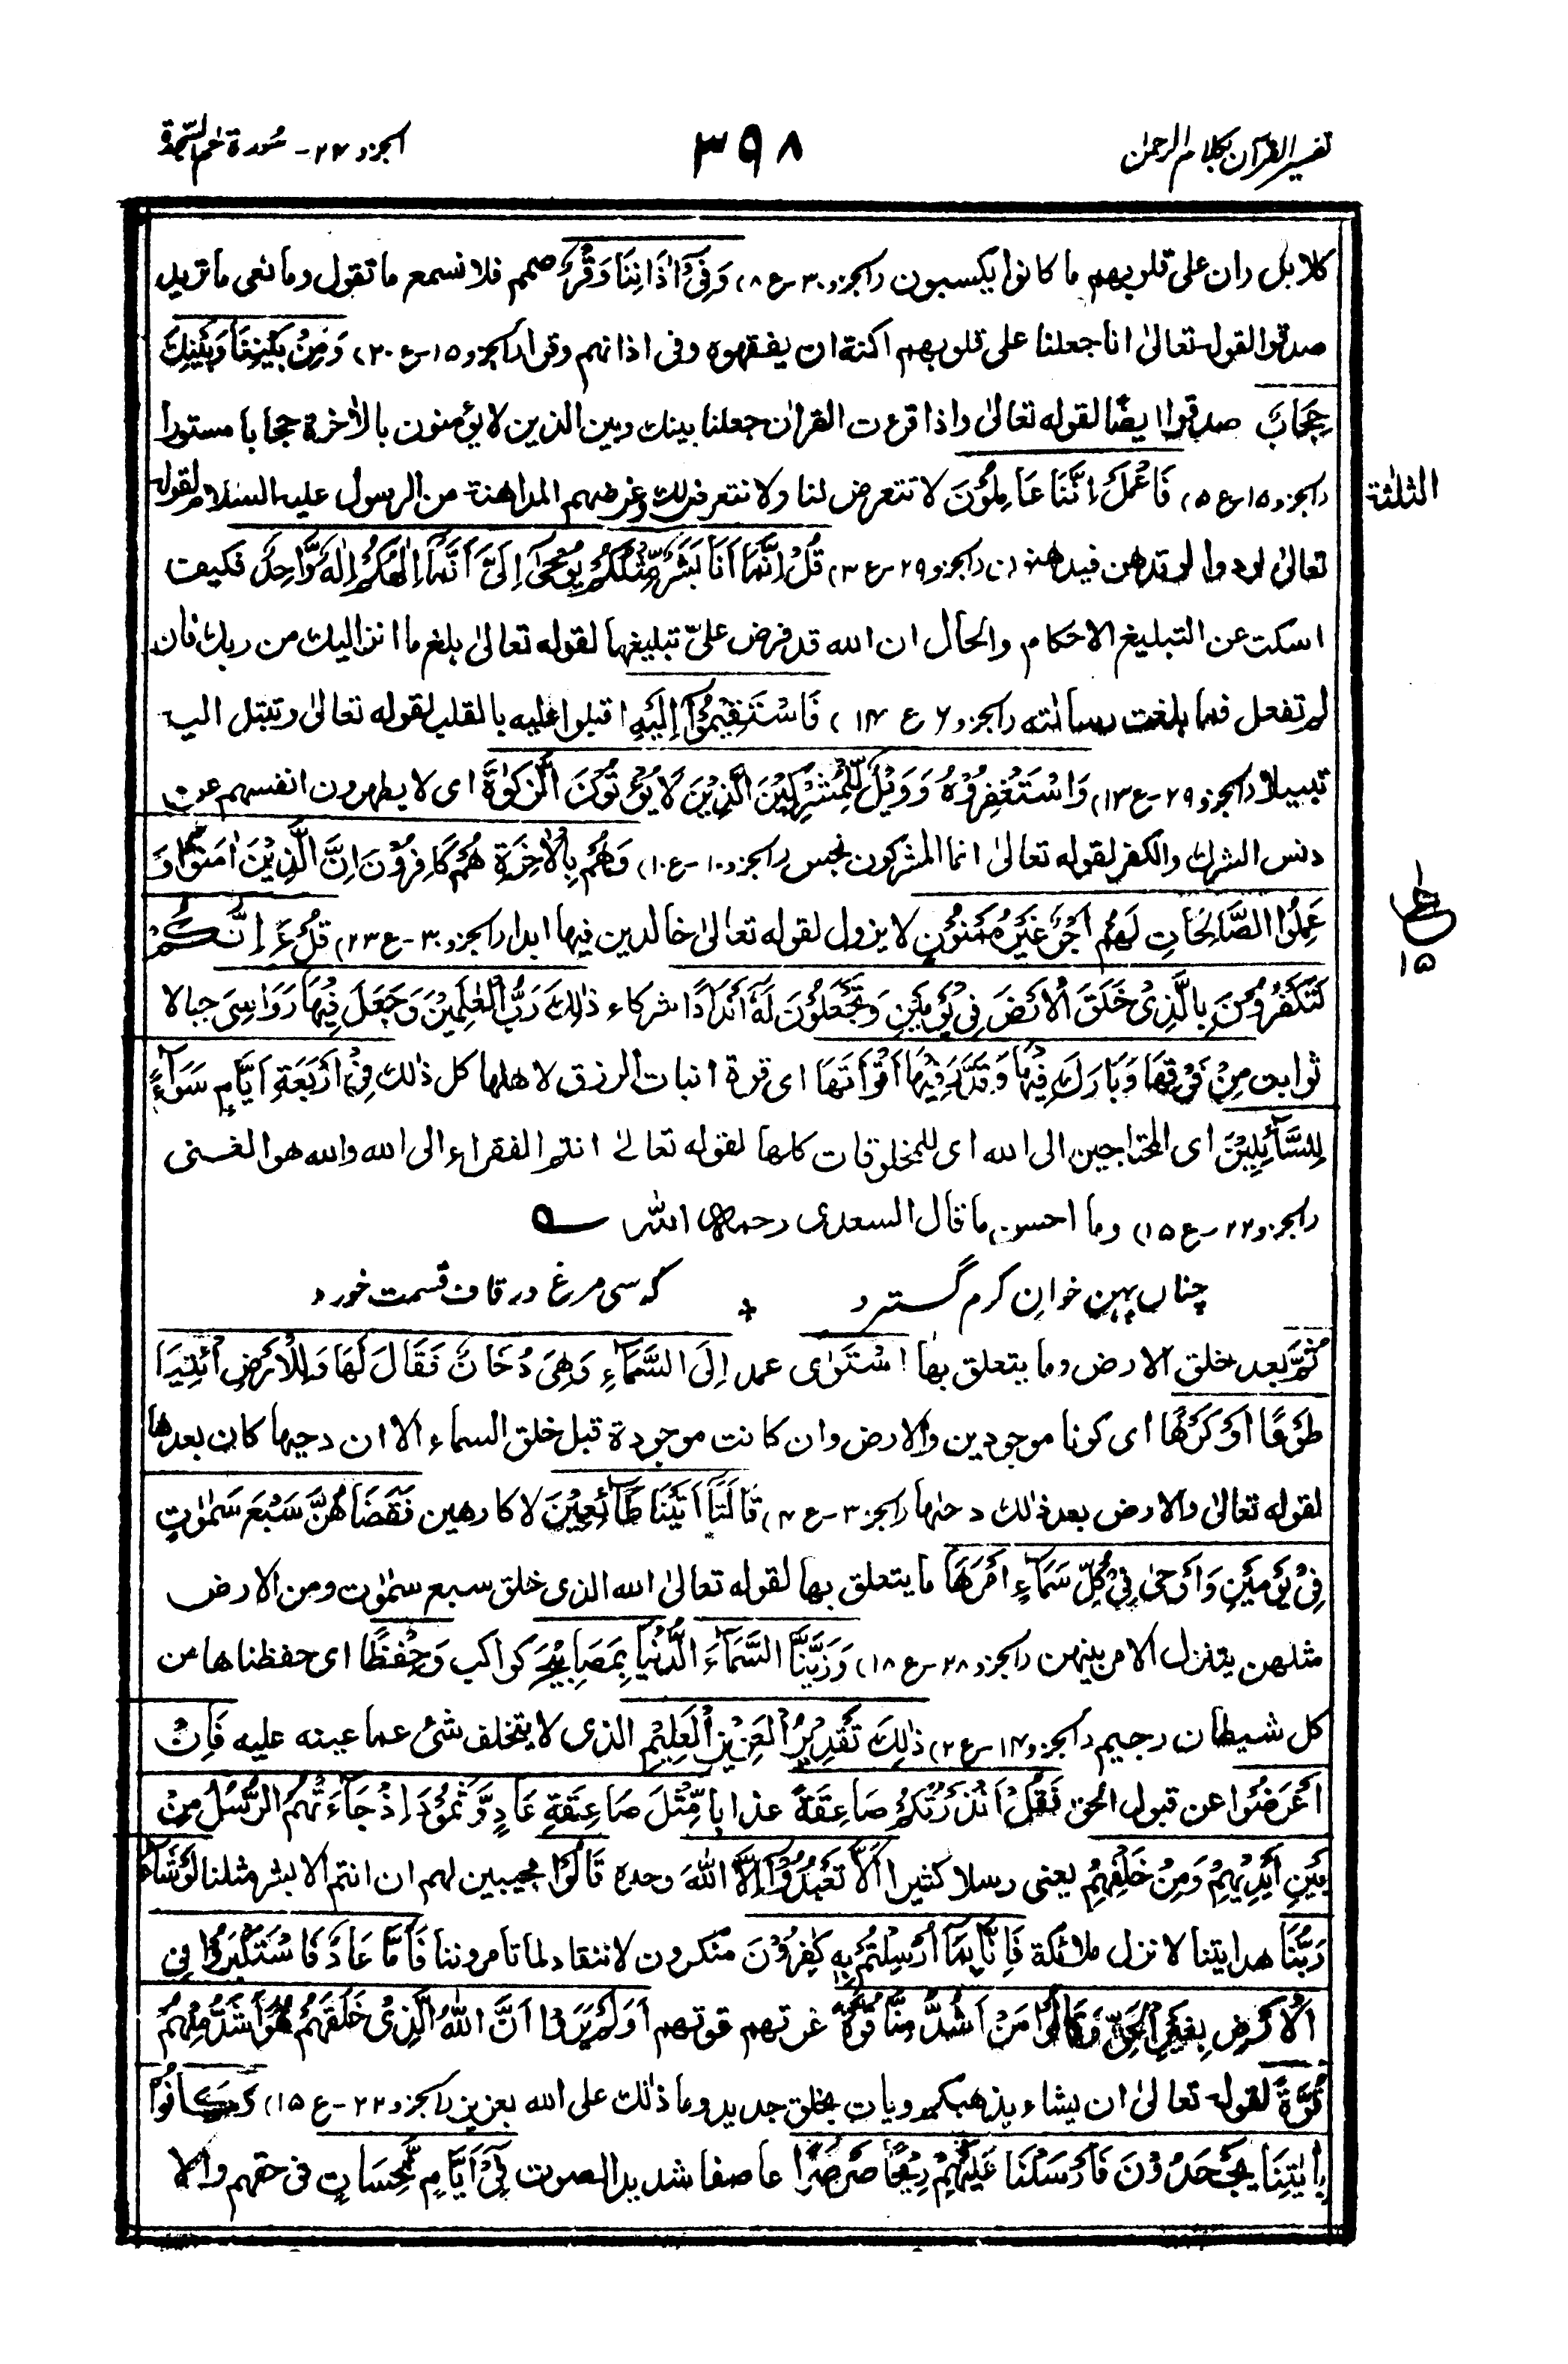 تفسير القرآن بكلام الرحمٰن
٣٩٨
الجزو ٢٤ - سُورة حٰم السّجدة
كلا بل ران على قلوبهم ما كانوا يكسبون (الجزو ٣٠ - ع ٨) وَفِىْٓ اٰذَانِنَا وَقْرٌ صمم فلا نسمع ما تقول وما نعى ما تريد
صدقوا لقوله تعالىٰ انا جعلنا على قلوبهم اكنة ان يفقهوه وفى اذانهم وقرا (الجزو ١٥ - ع ٢٠) وَمِنْۢ بَيْنِنَا وَبَيْنِكَ
حِجَابٌ صدقوا ايضًا لقوله تعالىٰ واذا قرءت القران جعلنا بينك وبين الذين لا يؤمنون بالاٰخرة حجابا مستورا
(الجزو ١٥ - ع ٥) فَاعْمَلْ اِنَّنَا عَامِلُوْنَ لا تتعرض لنا ولا نتعرض لك وغرضهم المداهنة من الرسول عليه السلام لقوله
الثلٰثة
تعالىٰ لودوا لو تدهن فيدهنون (الجزو ٢٩ - ع ٣) قُلْ اِنَّمَآ اَنَا بَشَرٌ مِّثْلُكُمْ يُوْحٰىٓ اِلَىَّ اَنَّمَآ اِلٰهُكُمْ اِلٰهٌ وَّاحِدٌ فكيف
اسكت عن التبليغ الاحكام والحال ان الله قد فرض علىّ تبليغها لقوله تعالىٰ بلغ ما انزل اليك من ربك فان
لم تفعل فما بلغت رسالته (الجزو ٦ ع ١٤) فَاسْتَقِيْمُوْٓا اِلَيْهِ اقبلوا عليه بالقلب لقوله تعالىٰ وتبتل اليه
تبتيلا (الجزو ٢٩ - ع ١٣) وَاسْتَغْفِرُوْهُ وَوَيْلٌ لِّلْمُشْرِكِيْنَ الَّذِيْنَ لَا يُؤْتُوْنَ الزَّكٰوةَ اى لا يطهرون انفسهم عن
دنس الشرك والكفر لقوله تعالىٰ انما المشركون نجس (الجزو ١٠ - ع ١٠) وَهُمْ بِالْاٰخِرَةِ هُمْ كَافِرُوْنَ اِنَّ الَّذِيْنَ اٰمَنُوْا وَ
١٥
عَمِلُوا الصَّالِحَاتِ لَهُمْ اَجْرٌ غَيْرُ مَمْنُوْنٍ لا يزول لقوله تعالىٰ خالدين فيها ابدا (الجزو ٣٠ - ع ٢٣) قُلْ ءَاِنَّكُمْ
لَتَكْفُرُوْنَ بِالَّذِىْ خَلَقَ الْاَرْضَ فِىْ يَوْمَيْنِ وَتَجْعَلُوْنَ لَهٗٓ اَنْدَادًا شركاء ذٰلِكَ رَبُّ الْعٰلَمِيْنَ وَجَعَلَ فِيْهَا رَوَاسِىَ جبالا
ثوابت مِنْ فَوْقِهَا وَبَارَكَ فِيْهَا وَقَدَّرَ فِيْهَآ اَقْوَاتَهَا اى قوة انبات الرزق لاهلها كل ذٰلك فِىْٓ اَرْبَعَةِ اَيَّامٍ سَوَآءً
لِلسَّآئِلِيْنَ اى المحتاجين الى الله اى للمخلوقات كلها لقوله تعالىٰ انتم الفقراء الى الله والله هو الغنى
(الجزو ٢٢ - ع ١٥) وما احسن ما قال السعدى رحمه الله ؎
چناں پہن خوانِ كرم گسترد + كہ سى مرغ در قاف قسمت خورد
ثُمَّ بعد خلق الارض وما يتعلق بها اسْتَوٰٓى عمد اِلَى السَّمَآءِ وَهِىَ دُخَانٌ فَقَالَ لَهَا وَلِلْاَرْضِ ائْتِيَا
طَوْعًا اَوْ كَرْهًا اى كونا موجودين والارض وان كانت موجودة قبل خلق السماء الا ان دحيها كان بعدها
لقوله تعالىٰ والارض بعد ذٰلك دحٰها (الجز ٣٠ - ع ٤) قَالَتَآ اَتَيْنَا طَآئِعِيْنَ لا كارهين فَقَضَاهُنَّ سَبْعَ سَمٰوٰتٍ
فِىْ يَوْمَيْنِ وَاَوْحٰى فِىْ كُلِّ سَمَآءٍ اَمْرَهَا ما يتعلق بها لقوله تعالىٰ الله الذى خلق سبع سمٰوٰت ومن الارض
مثلهن يتنزل الامر بينهن (الجزو ٢٨ - ع ١٨) وَزَيَّنَّا السَّمَآءَ الدُّنْيَا بِمَصَابِيْحَ كواكب وَحِفْظًا اى حفظناها من
كل شيطان رجيم (الجزو ١٤ - ع ٢) ذٰلِكَ تَقْدِيْرُ الْعَزِيْزِ الْعَلِيْمِ الذى لا يتخلف شئ عما عينه عليه فَاِنْ
اَعْرَضُوْا عن قبول الحق فَقُلْ اَنْذَرْتُكُمْ صَاعِقَةً عذابا مِّثْلَ صَاعِقَةِ عَادٍ وَّثَمُوْدَ اِذْ جَآءَتْهُمُ الرُّسُلُ مِنْۢ
بَيْنِ اَيْدِيْهِمْ وَمِنْ خَلْفِهِمْ يعنى رسلا كثيرا اَلَّا تَعْبُدُوْٓا اِلَّا اللّٰهَ وحده قَالُوْا مجيبين لهم ان انتم الا بشر مثلنا لَوْ شَآءَ
رَبُّنَا هدايتنا لانزل ملائكة فَاِنَّا بِمَآ اُرْسِلْتُمْ بِهٖ كٰفِرُوْنَ منكرون لا ننقاد لما تامروننا فَاَمَّا عَادٌ فَاسْتَكْبَرُوْا فِى
الْاَرْضِ بِغَيْرِ الْحَقِّ وَقَالُوْا مَنْ اَشَدُّ مِنَّا قُوَّةً غرتهم قوتهم اَوَلَمْ يَرَوْا اَنَّ اللّٰهَ الَّذِىْ خَلَقَهُمْ هُوَ اَشَدُّ مِنْهُمْ
قُوَّةً لقوله تعالىٰ ان يشاء يذهبكم ويات بخلق جديد وما ذٰلك على الله بعزيز (الجزو ٢٢ - ع ١٥) وَكَانُوْا
بِاٰيٰتِنَا يَجْحَدُوْنَ فَاَرْسَلْنَا عَلَيْهِمْ رِيْحًا صَرْصَرًا عاصفا شديد الصوت فِىْٓ اَيَّامٍ نَّحِسَاتٍ فى حقهم والا